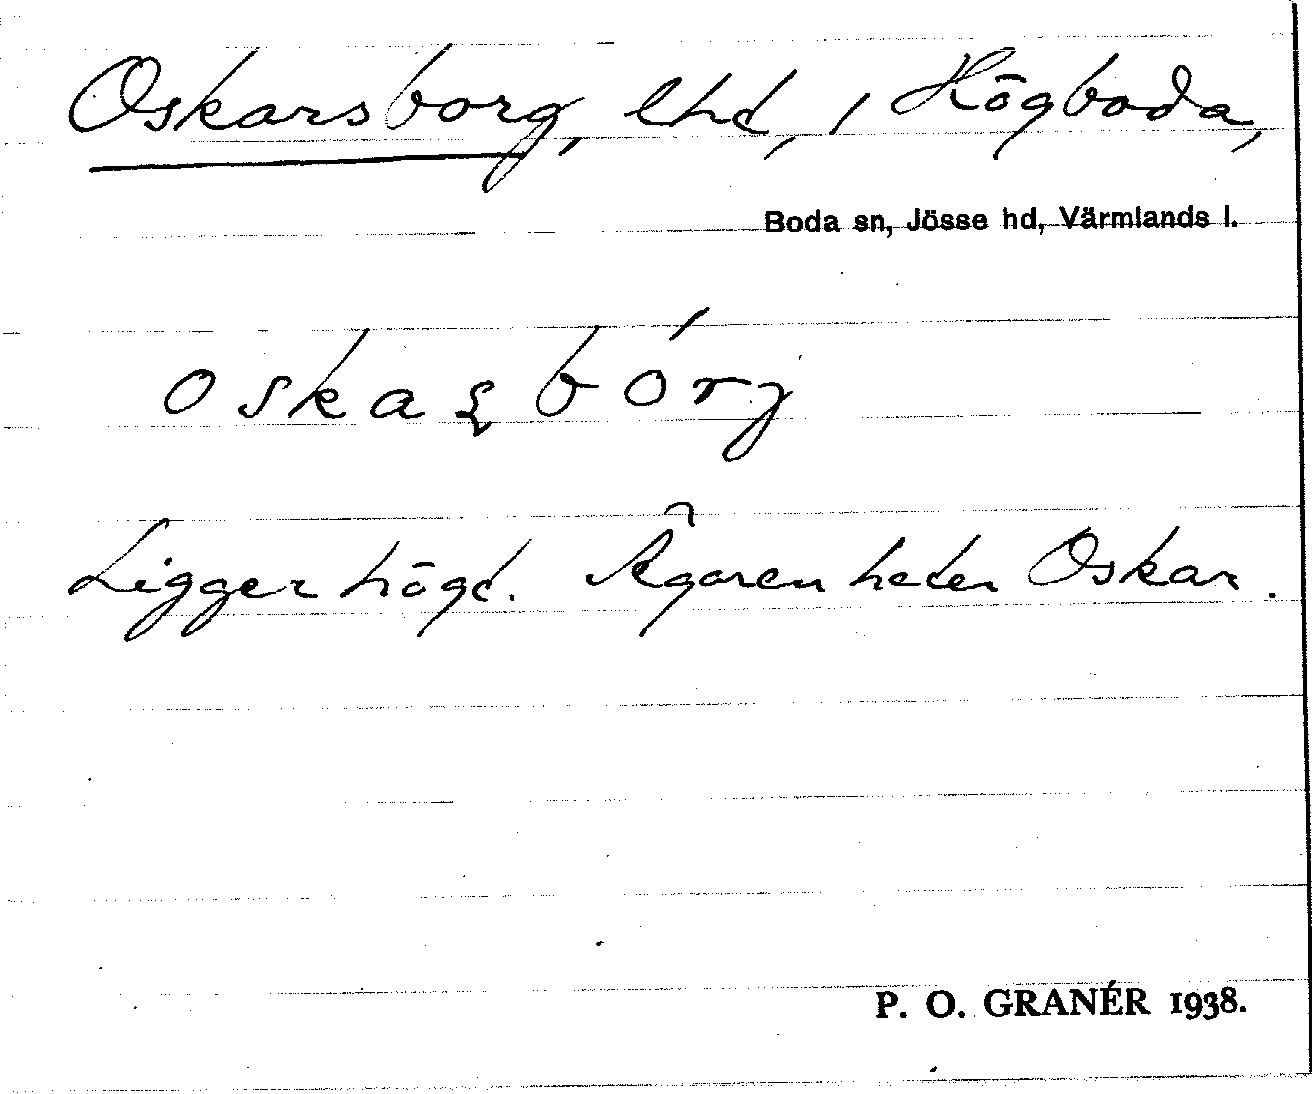 Oskarsborg, lht, i Högboda,
Boda sn, Jösse hd, Värmlands l.
oskaʂbórj
Ligger högt. Ägaren heter Oskar.
P. O. GRANÉR 1938.